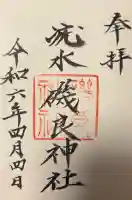 奉拝
疣水磯良神社
令和六年四月四日